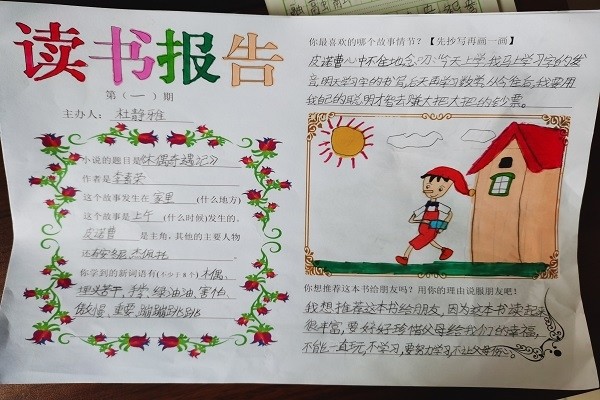 读书报告
第（一）期
主办人：杜静雅
小说的题目是《木偶奇遇记》
作者是李春荣
这个故事发生在 家里 （什么地方）
这个故事是 上午 （什么时候）发生的。
皮诺曹 是主角，其他的主要人物
还有安东尼 杰佩托
你学到的新词语有（不少于8个）木偶、
埋头苦干、 绿油油、害怕、
傲慢、 蹦蹦跳跳
你最喜欢的哪个故事情节？【先抄写再画一画】
皮诺曹心中不住地念叨，今天上学，我马上学习字的发
音，明天学习字的书写，后天再学习数学，从今往后，我要用
我自己的聪明才智去赚大把大把的钞票。
你想推荐这本书给朋友吗？用你的理由说服朋友吧！
我想推荐这本书给朋友，因为这本书读起来
很丰富，要好好珍惜父母给我们的幸福，
不能一直玩，不学习，要努力学习，不让父母伤